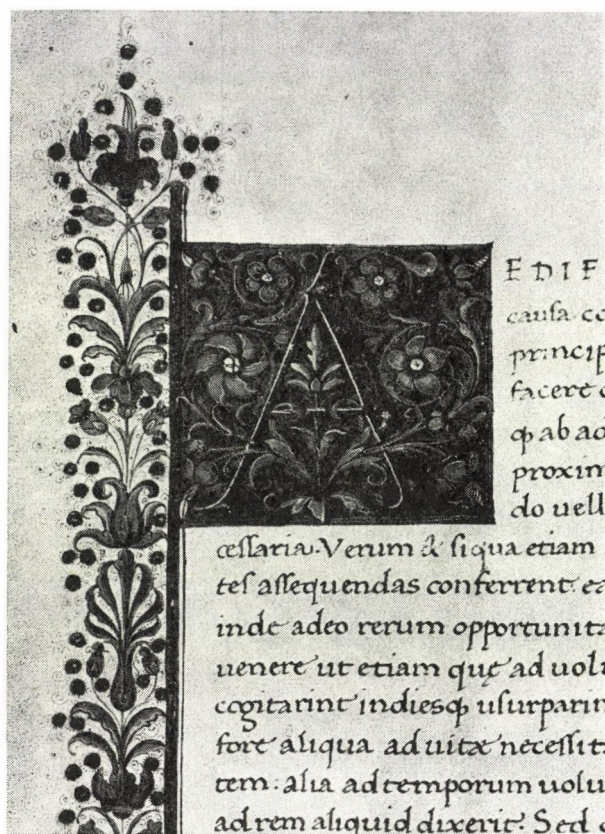 A
EDIF
causa co
princip
facere
ꝙ ab ao
proxim
do uell
cessaria. Verum & siqua etiam
tes assequendas conferrent ea
inde adeo rerum opportunita
uenere ut etiam quę ad uolu
cogitarint indiesꝙ usurparin
fore aliqua ad uitæ necessita
tem: alia ad temporum uolu
ad rem aliquid dixerit? Sed